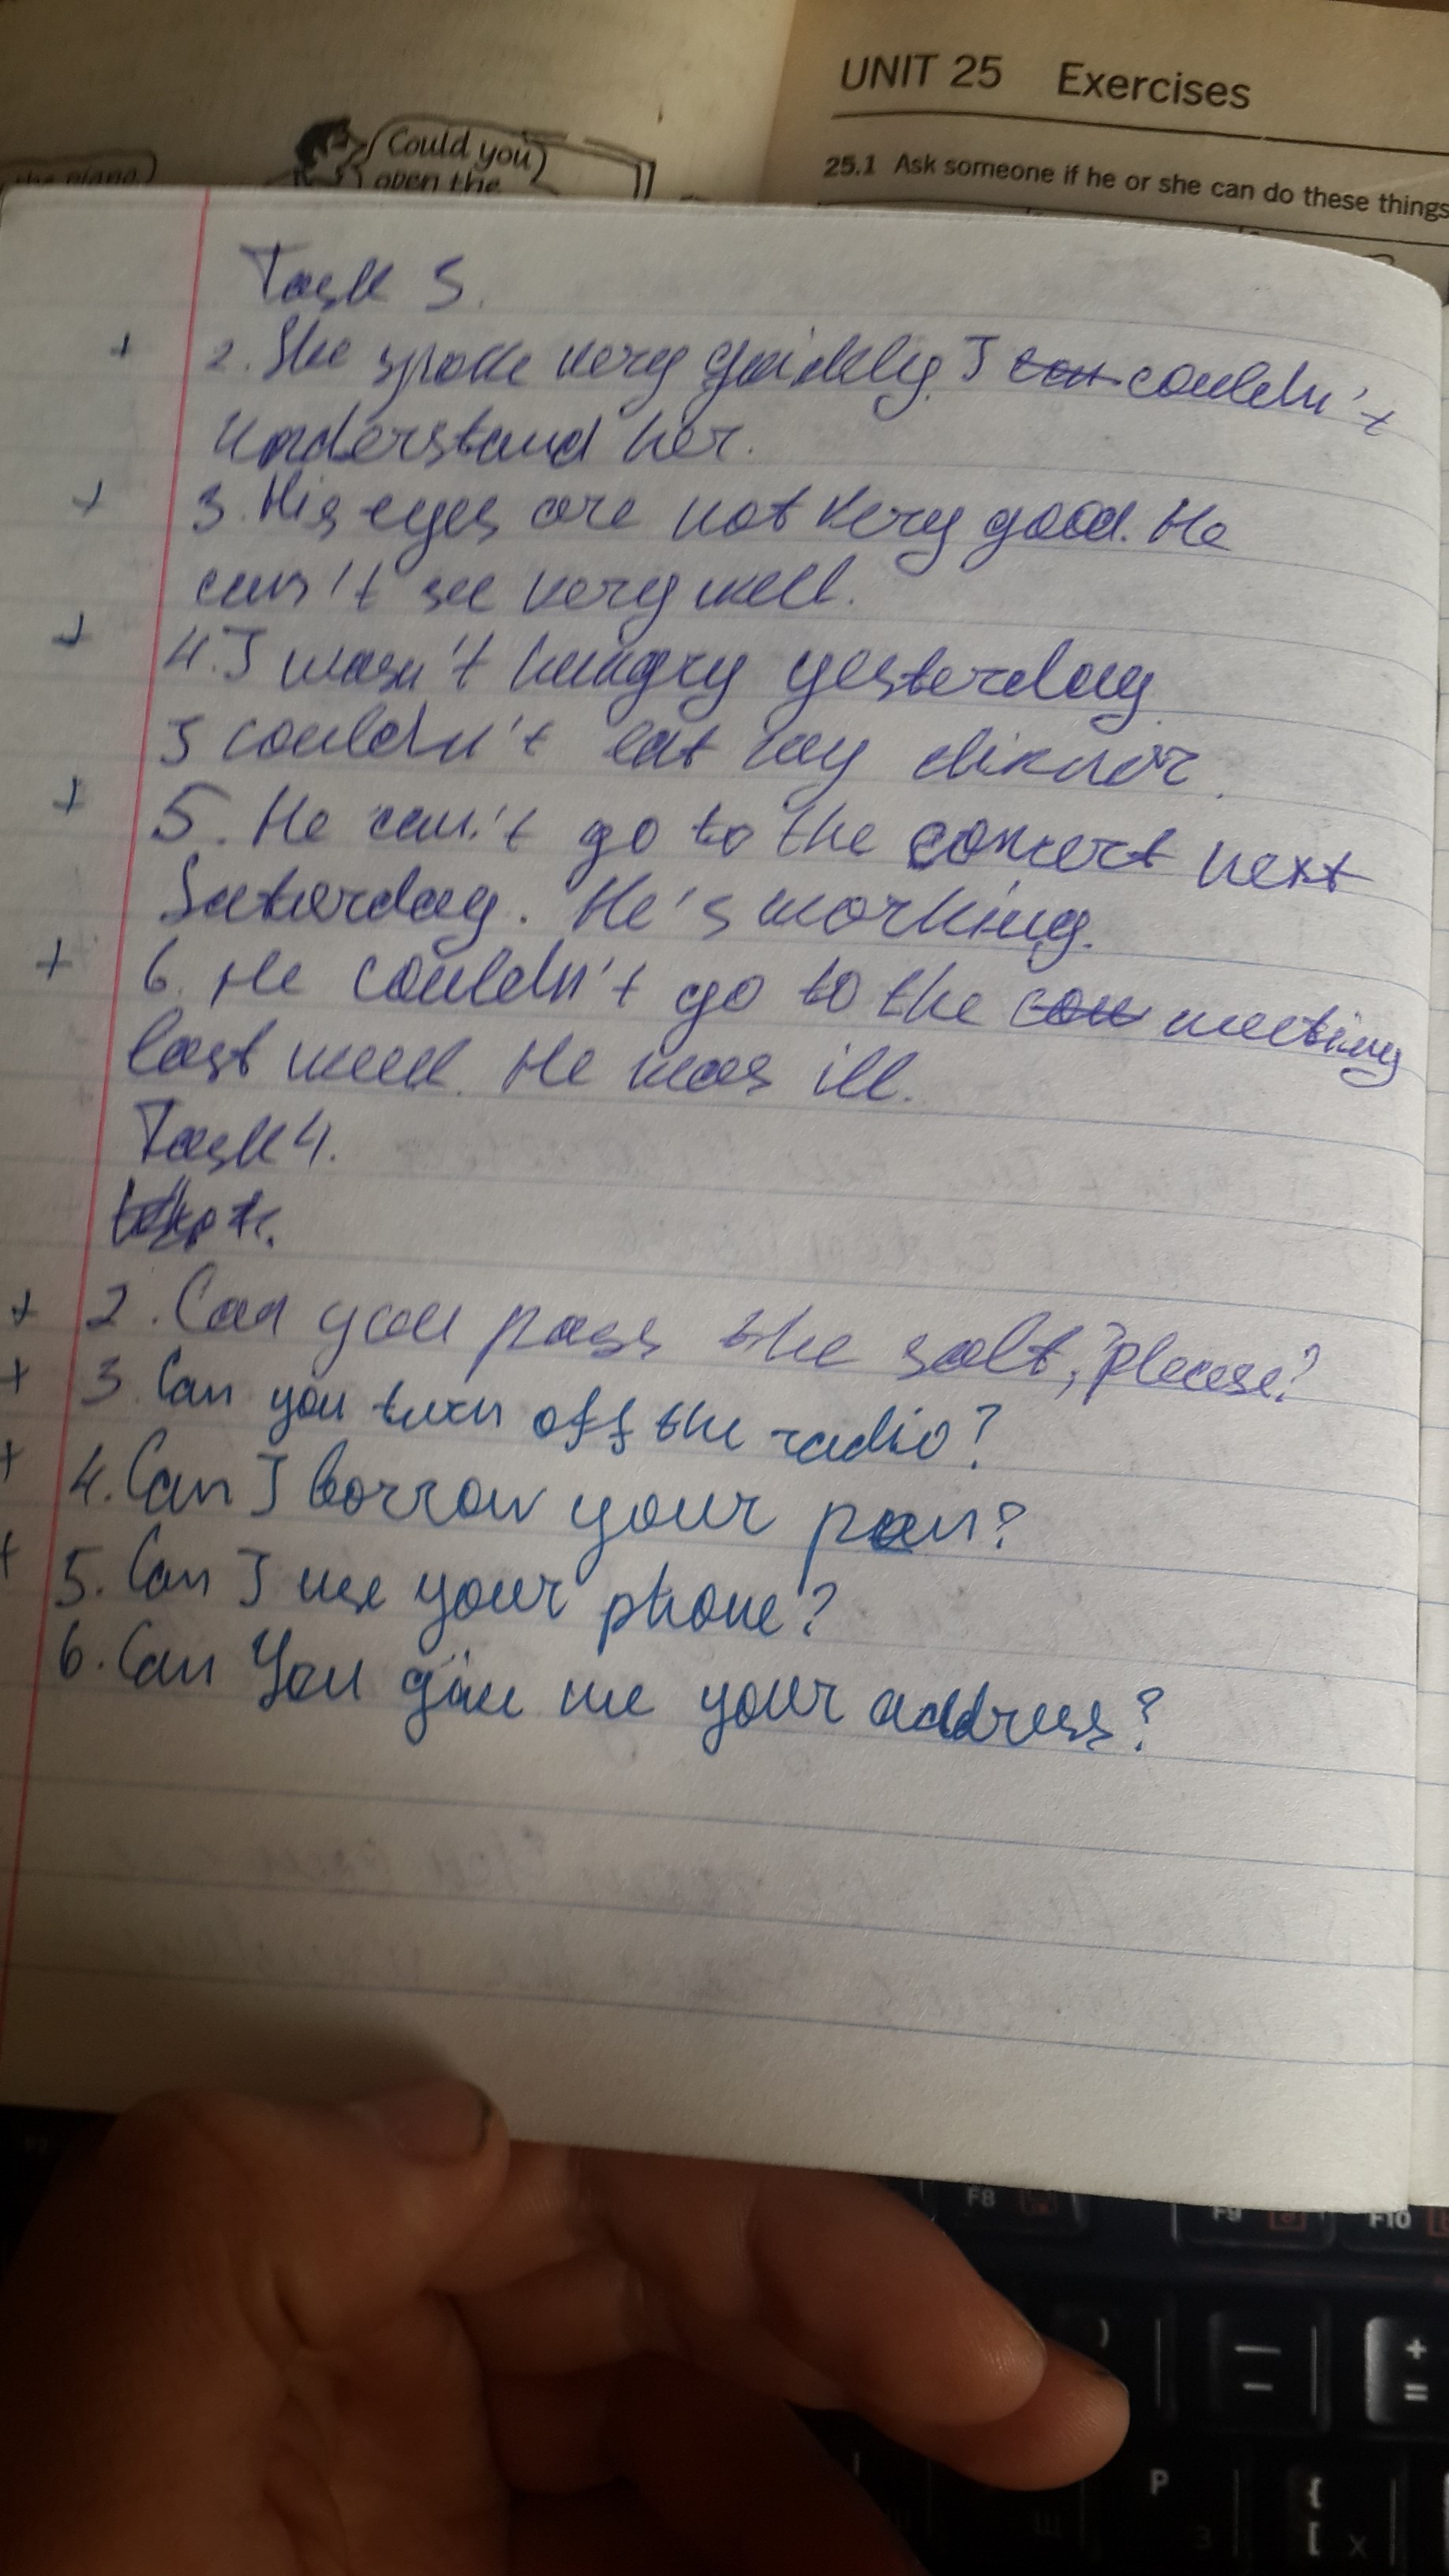 UNIT 25 Exercises
the piano
Could you
open the
25.1 Ask someone if he or she can do these things
Task 3.
+ 2. She spoke very quickly. I can couldn't
understand her.
+ 3. His eyes are not very good. He
can't see very well.
+ 4. I wasn't hungry yesterday.
I couldn't eat my dinner.
+ 5. He can't go to the concert next
Saturday. He's working.
+ 6. He couldn't go to the con meeting
last week. He was ill.
Task 4.
+ 2. Can you pass the salt, please?
+ 3. Can you turn off the radio?
+ 4. Can I borrow your pen?
+ 5. Can I use your phone?
6. Can You give me your address?
F8
F9
F10
+
=
P
{
[